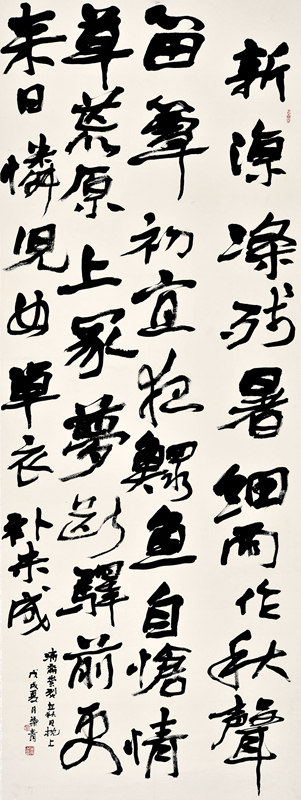 新涼滌殘暑細雨作秋聲
笛簟初宜夜鰥魚自愴情
草荒原上冢夢斷驛前更
來日憐兒女單衣補未成
秋日枕上
戊戌夏月